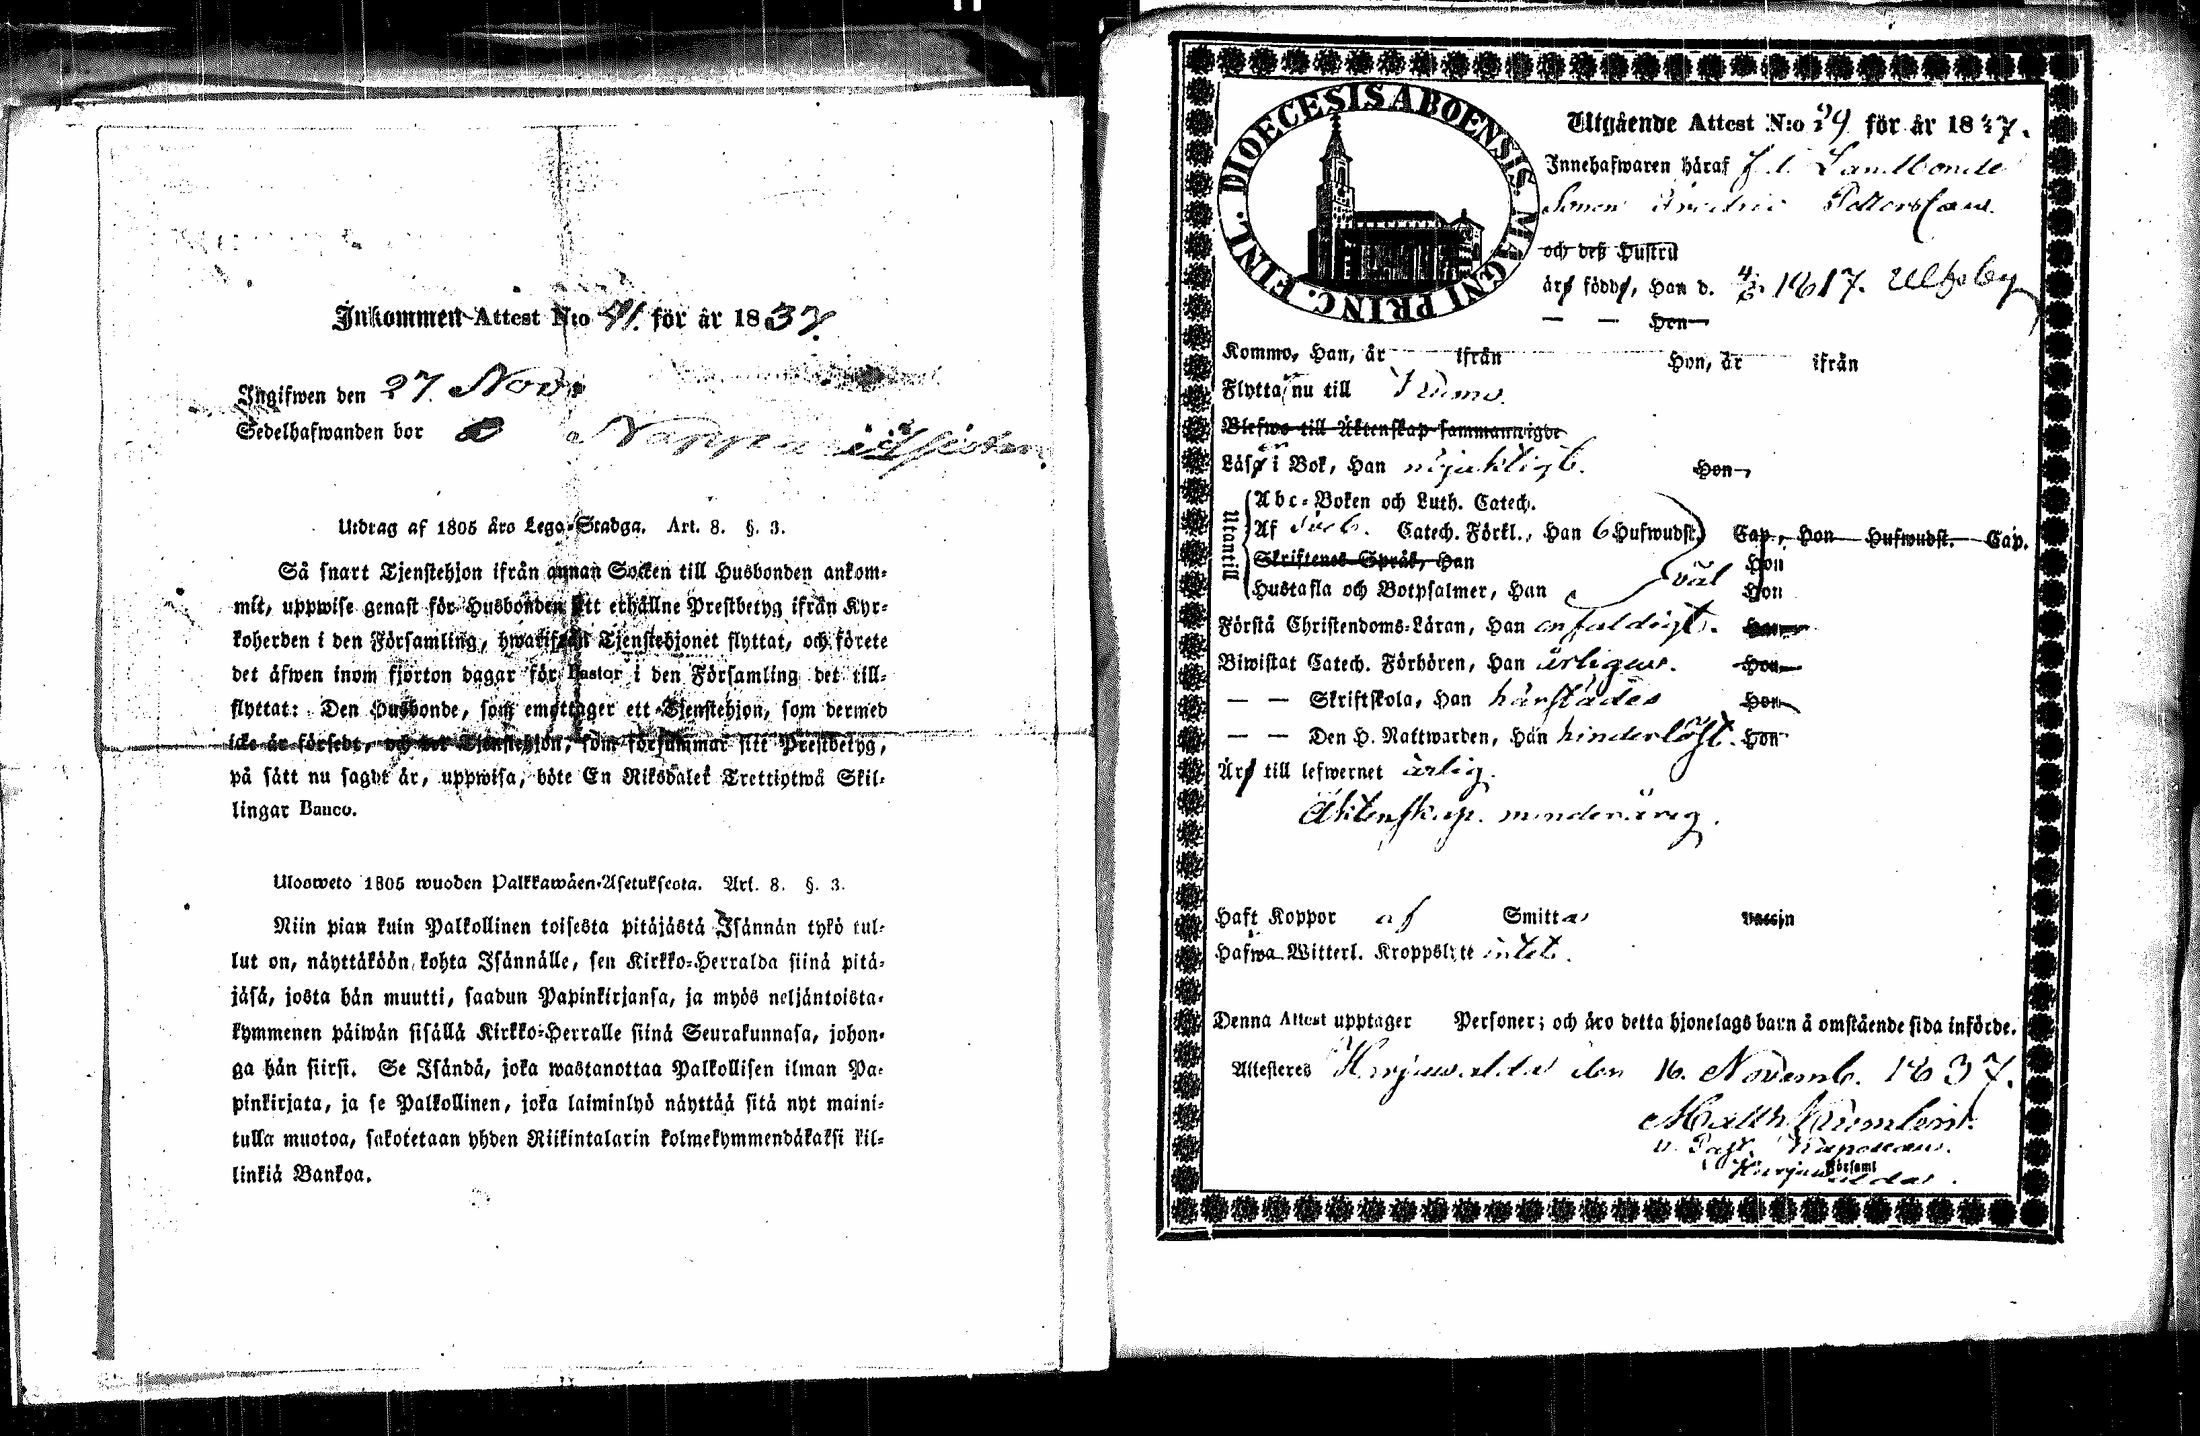 Inkommen Attest N:o 41. för år 1837.
Ingifwen den 27. Nov.
Sedelhafwanden bor
Utdrag af 1805 års Lego-Stadga. Art. 8. §. 3.
Så snart Tjenstehjon ifrån annan Socken till Husbonden ankom-
mit, uppwise genast för Husbonden sitt erhållne Prestbetyg ifrån Kyr-
koherden i den Församling, hwarifrån Tjenstehjonet flyttat, och förete
det äfwen inom fjorton dagar för Pastor i den Församling det till-
flyttat: Den Husbonde, som emottager ett Tjenstehjon, som dermed
icke är försedt, och det Tjenstehjon, som försummar sitt Prestbetyg,
på sätt nu sagdt är, uppwisa, böte En Riksdaler Trettiotwå Skil-
lingar Banco.
Ulosweto 1805 wuoden Palkkawäen-Asetuksesta. Art. 8. §. 3.
Niin pian kuin Palkollinen toisesta pitäjästä Isännän tykö tul-
lut on, näyttäköön kohta Isännälle, sen Kirkko-Herralda siinä pitä-
jäsä, josta hän muutti, saadun Papinkirjansa, ja myös neljäntoista-
kymmenen päiwän sisällä Kirkko-Herralle siinä Seurakunnasa, johon-
ga hän siirsi. Se Isändä, joka wastanottaa Palkollisen ilman Pa-
pinkirjata, ja se Palkollinen, joka laiminlyö näyttää sitä nyt maini-
tulla muotoa, sakotetaan yhden Riikintalarin kolmekymmendäkaksi kil-
linkiä Bankoa.
DIOECESIS ABOENSIS. MAGNI PRINC. FINL.
Utgående Attest N:o 29 för år 1837.
Innehafwaren häraf f.d. Landbonde
Sonen Fredric Pettersson
och deß Hustru
äro födde, Han d. 4/6 1817. Ulfsby
— — Hon
Kommo, Han, år ifrån Hon, år ifrån
Flytta nu till
Blefwo till Äktenskap sammanwigde
Läsa i Bok, Han nöjaktigt. Hon,
Utantill
Abc-Boken och Luth. Catech.
Af Sveb. Catech. Förkl., Han 6 Hufwudst. Cap., Hon Hufwudst. Cap.
Skriftenes Språk, Han Hon
Hustafla och Botpsalmer, Han väl Hon
Förstå Christendoms-Läran, Han enfaldigt. Hon
Biwistat Catech. Förhören, Han årligen. Hon
— — Skriftskola, Han härstädes Hon
— — Den H. Nattwarden, Han hinderlöst. Hon
Äro till lefwernet ärlig.
Äktenskap. minderårig.
Haft Koppor af Smitta vaccin
Hafwa Witterl. Kroppslyte intet.
Denna Attest upptager Personer; och äro detta hjonelags barn å omstående sida införde.
Attesteres Harjawalda den 16. Novemb. 1837.
Matth
v. Past. Kapellan
Harjawalda Församl